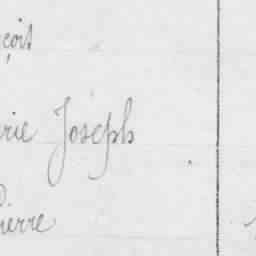 çoit
rie Joseph
ierre